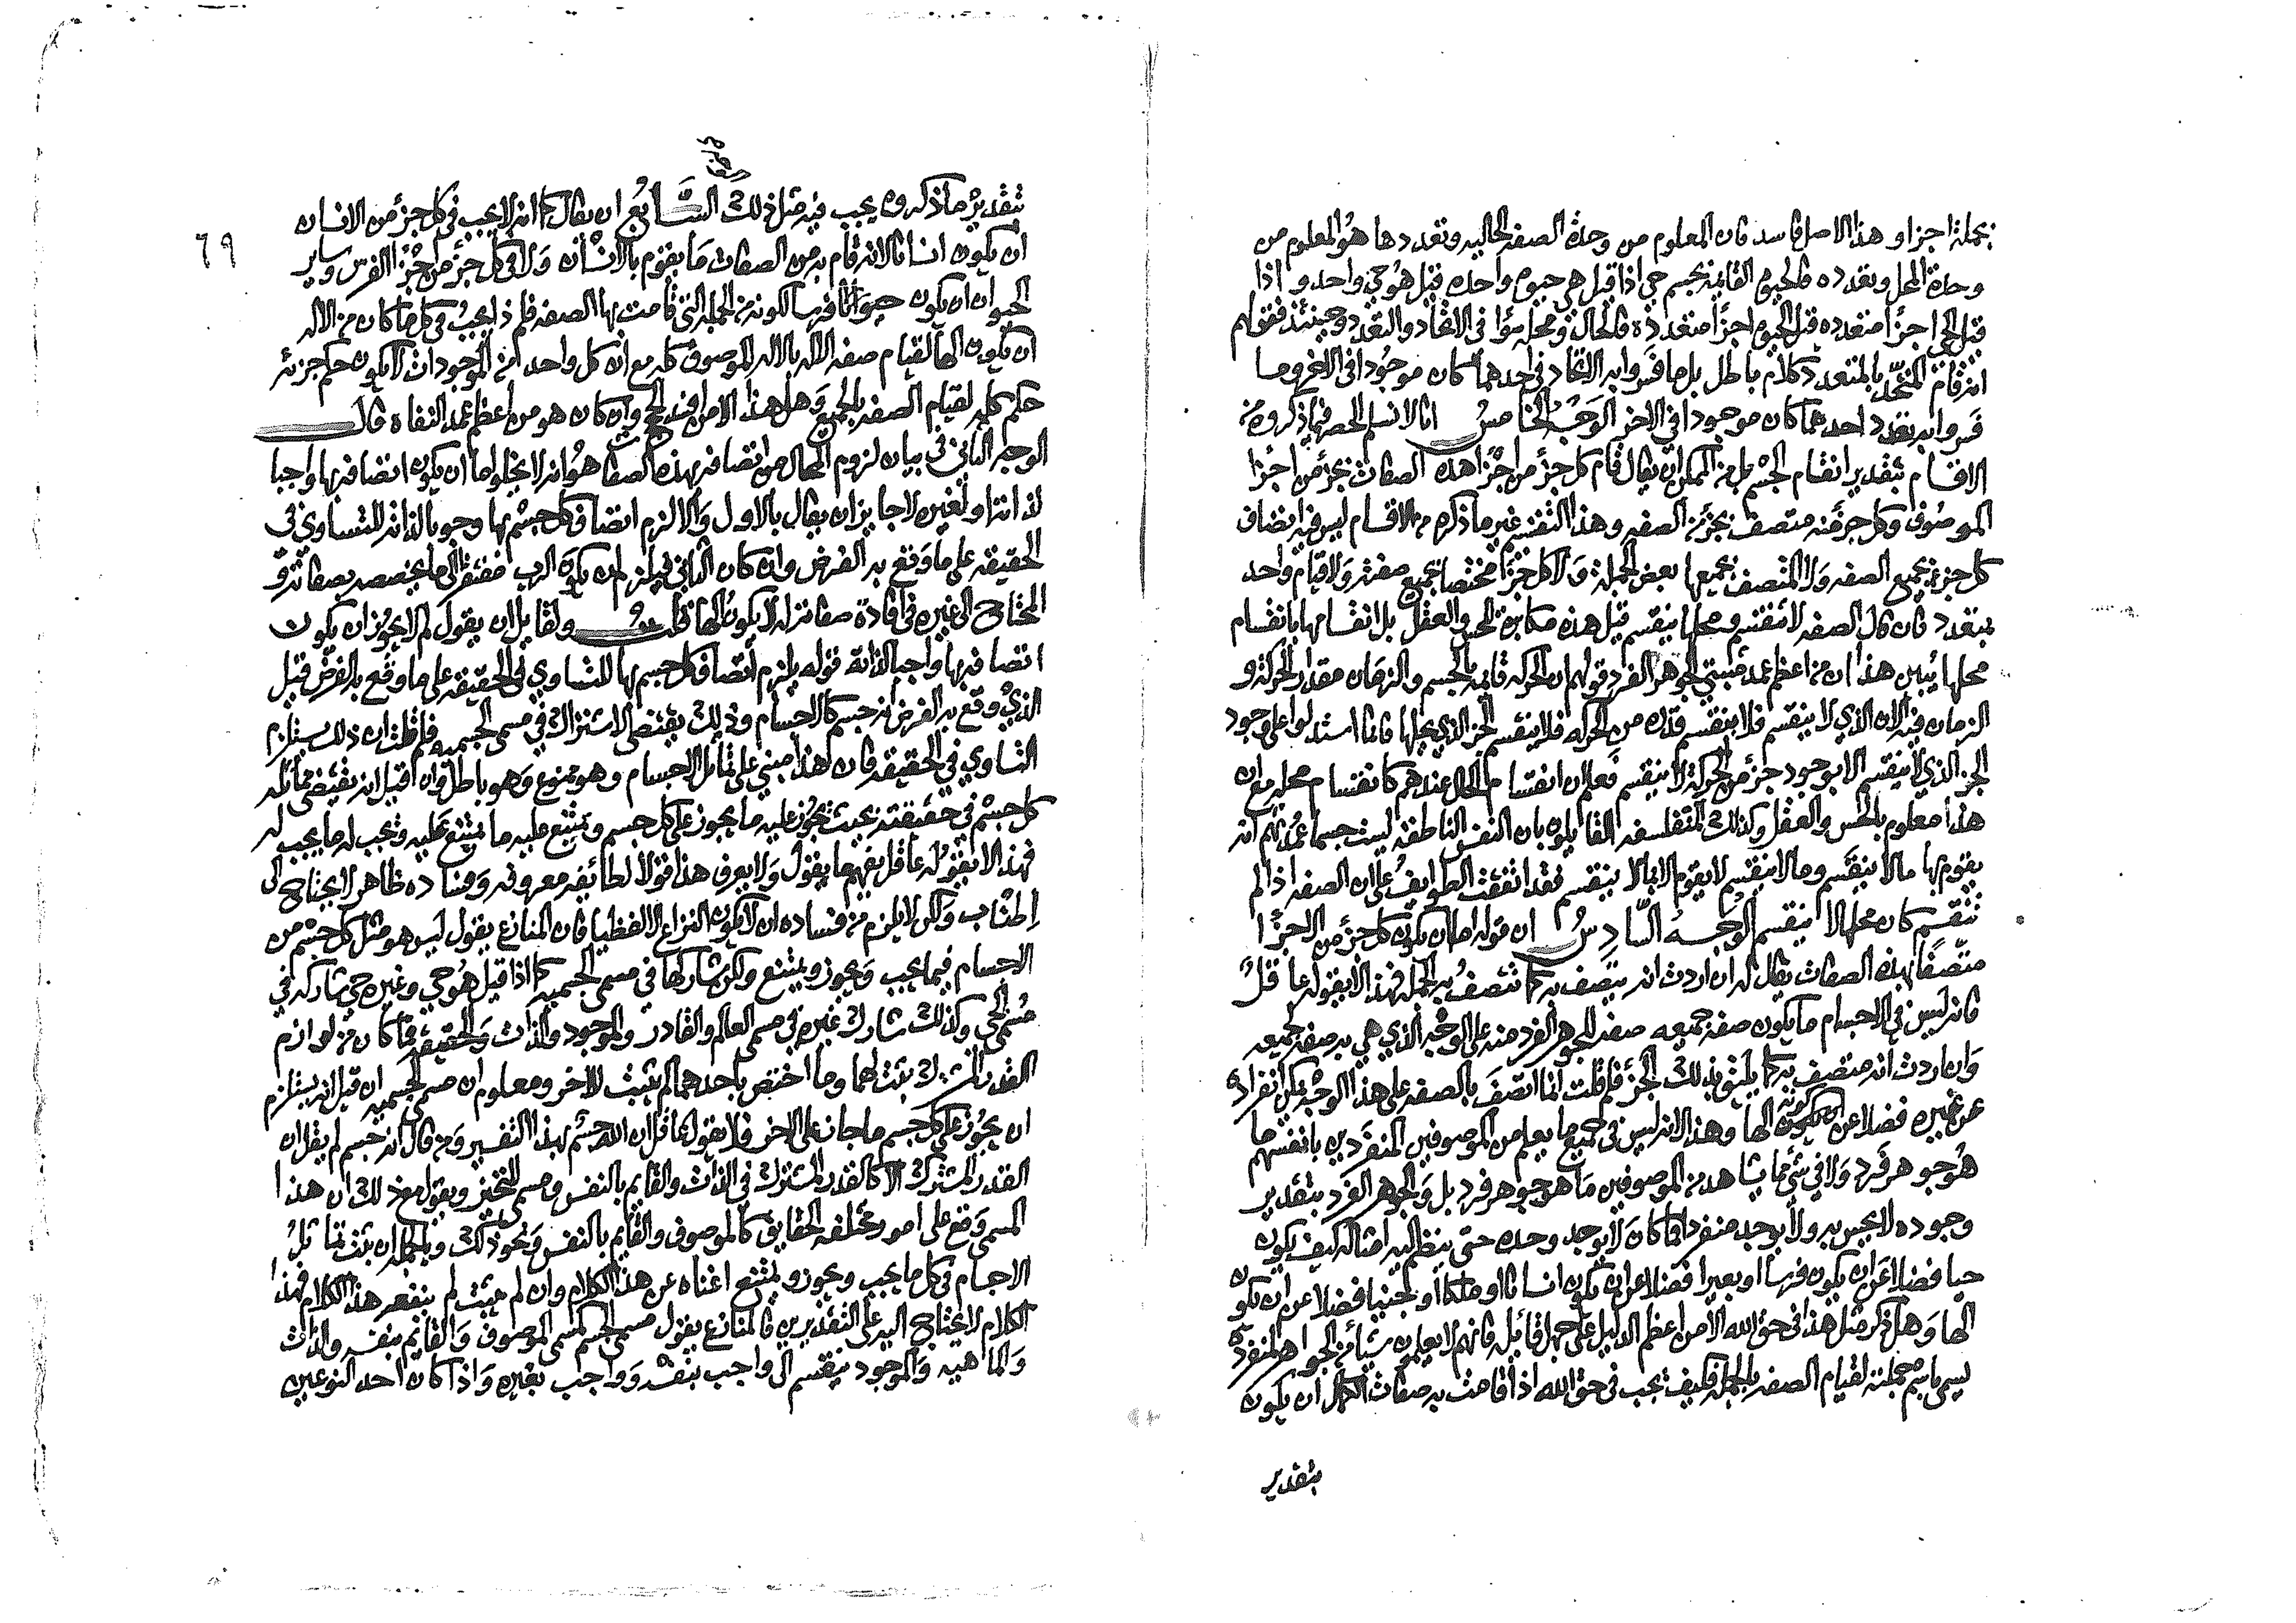 بجملة اجزاء وهذا الاصل فاسد فان المعلوم من وحدة الصفه الحاليه وتعددها هو المعلوم من
وحدة المحل وتعدده فالحيوة القايمة بجسم حي اذا قيل هي حيوة واحده قيل هو حي واحد واذا
قيل الحي اجزأ متعدده قيل الحيوة اجزأ متعدده فالحال ومحله سوا في الاتحاد والتعدد وحينئذ فقولهم
انه قام المتحد بالمتعدد كلام باطل بل ما فسروا به الاتحاد في احدهما كان موجودا في الاخر وما
فسروا به تعدد احدهما كان موجودا في الاخر الوجه الخامس انا لا نسلم الحصر فيما ذكروه من
الاقسام بتقدير انقسام الجسم بل من الممكن ان يقال قام كل جزؤ من اجزا هذه الصفات بجزؤ من اجزا
الموصوف وكل جزء منه متصف بجزؤ من الصفه وهذا التقسيم غير ما ذكره من الاقسام ليس فيه اتصاف
كل جزء بجميع الصفه ولا المتصف بجميعها بعض الجملة ولا كل جزأ مختصا بجميع صفته ولا قيام واحد
بمتعدد فان قال الصفه لا تنقسم ومحلها ينقسم قيل هذه مكابرة للحس والعقل بل انقسامها بانقسام
محلها يبين هذا ان من اعظم عمد مثبتي الجوهر الفرد قولهم ان الحركه قايمة بالجسم والزمان مقدار الحركة و
الزمان فيه الان الذي لا ينقسم فلا ينقسم قدره من الحركه فلا ينقسم الجز الذي يحلها فانما استدلوا على وجود
الجز الذي لا ينقسم الا بوجود جزؤ من الحركة لا ينقسم فعلم ان انقسام الحال عندهم كانقسام محله مع ان
هذا معلوم بالحس والعقل وكذلك المتفلسفه القايلون بان النفس الناطقه ليست جسما عمدتهم انه
يقوم بها ما لا ينقسم وما لا ينقسم لا يقوم الا بما لا ينقسم فقد اتفقت الطوايف على ان الصفه اذا لم
تنقسم كان محلها لا ينقسم الوجه السادس ان قوله اما ان يكون كل جزؤ من الاجزا
متصفا بهذه الصفات يقال له ان اردت انه يتصف به كما تتصف به الجمله فهذا لا يقوله عاقل
فانه ليس في الاجسام ما يكون صفة جميعه صفه للجوهر الفرد منه على الوجه الذي هي به صفة لجميعه
وان اردت انه متصف به كما يليق بذلك الجزؤ فلم قلت انما اتصف بالصفه على هذا الوجه يمكن انفراده
عن غيره فضلا عن كونه الها وهذا لانه ليس في جميع ما يعلم من الموصوفين المنفردين بانفسهم ما
هو جوهر فرد ولا في شئ مما يشاهد من الموصوفين ما هو جوهر فرد بل والجوهر الفرد بتقدير
وجوده لا يحس به ولا يوجد منفردا فما كان لا يوجد وحده حتى ينظم اليه امثاله كيف يكون
حيا فضلا عن ان يكون فرسا او بعيرا فضلا عن ان يكون انسانا او ملكا او جنيا فضلا عن ان يكون
الها وهل ذكر مثل هذا في حق الله الا من اعظم الدليل على جهل قائله فانهم لا يعلمون شيئا من الجواهر المنفردة
يسمى باسم جملته لقيام الصفه بالجملة فكيف يجب في حق الله اذا قامت به صفات الكمال ان يكون
بتقدير
٦٩
بتقدير ما ذكروه يجب فيه مثل ذلك السابع ان يقال كما انه لا يجب في كل جزؤ من الانسان
ان يكون انسانا لانه قام به من الصفات ما يقوم بالانسان ولا في كل جزؤ من اجزا الفرس وساير
الحيوان ان يكون حيوانا فرسا لكونه من الجملة التي قامت بها الصفه فلم ذا يجب في كل ما كان من الاله
ان يكون الها لقيام صفه الاله بالاله الموصوف كله مع ان كل واحد من الموجودات لا يكون حكم جزئه
حكم كله لقيام الصفه بالجميع وهل هذا الا من افسد الحجج وان كان هو من اعظم عمد النفاه قال
الوجه الثاني في بيان لزوم المحال من اتصافه بهذه الصفات هو انه لا يخلو اما ان يكون اتصافه بها واجبا
لذاته او لغيره لا جايز ان يقال بالاول والا لزم اتصاف كل جسم بها وجوبا لذاته للتساوي في
الحقيقه على ما وقع به الفرض وان كان الثاني فيلزم ان يكون الرب مفتقرا الى ما يخصصه بصفاته و
المحتاج الى غيره في افادة صفاته له لا يكون الها قلت ولقايل ان يقول لم لا يجوز ان يكون
اتصافه بها واجبا لذاته قوله يلزم اتصاف كل جسم بها للتساوي في الحقيقه على ما وقع به الفرض قيل
الذي وقع به الفرض انه جسم كالاجسام وذلك يقتضي الاشتراك في مسمى الجسميه فلم قلت ان ذلك يستلزم
التساوي في الحقيقه فان هذا مبني على تماثل الاجسام وهو ممنوع وهو باطل وان قيل انه يقتضي مماثلة
كل جسم في حقيقته بحيث يجوز عليه ما يجوز على كل جسم ويمتنع عليه ما يمتنع عليه ويجب له ما يجب له
فهذا لا يقوله عاقل يفهم ما يقول ولا يعرف هذا قولا لطائفه معروفه وفساده ظاهر لا يحتاج الى
اطناب ولكن لا يلزم من فساده ان لا يكون النزاع الا لفظيا فان المنازع يقول ليس هو مثل كل جسم من
الاجسام فيما يجب ويجوز ويمتنع ولكن شاركها في مسمى الجسميه كما اذا قيل هو حي وغيره حي شاركه في
مسمى الحي وكذلك شارك غيره في مسمى العالم والقادر والموجود والذات والحقيقه فما كان من لوازم
القدر المشترك يثبت لهما وما اختص باحدهما لم يثبت للاخر ومعلوم ان مسمى الجسميه ان قيل انه يستلزم
ان يجوز على كل جسم ما جاز على الاخر فلا يقول عاقل ان الله جسم بهذا التفسير ومن قال انه جسم لم يقل ان
القدر المشترك الا كالقدر المشترك في الذات والقايم بالنفس ومسمى المتحيز ويقول مع ذلك ان هذا
المسمى وقع على امور مختلفه الحقايق كالموصوف والقايم بالنفس ونحو ذلك وبالجملة ان ثبت تماثل
الاجسام في كل ما يجب ويجوز ويمتنع اغناه عن هذا الكلام وان لم يثبت لم ينفعه هذا الكلام فهذا
الكلام لا يحتاج اليه على التقديرين فالمنازع يقول مسمى الجسم كمسمى الموصوف والقايم بنفسه والذات
والماهيه والموجود ينقسم الى واجب بنفسه وواجب بغيره واذا كان احد النوعين